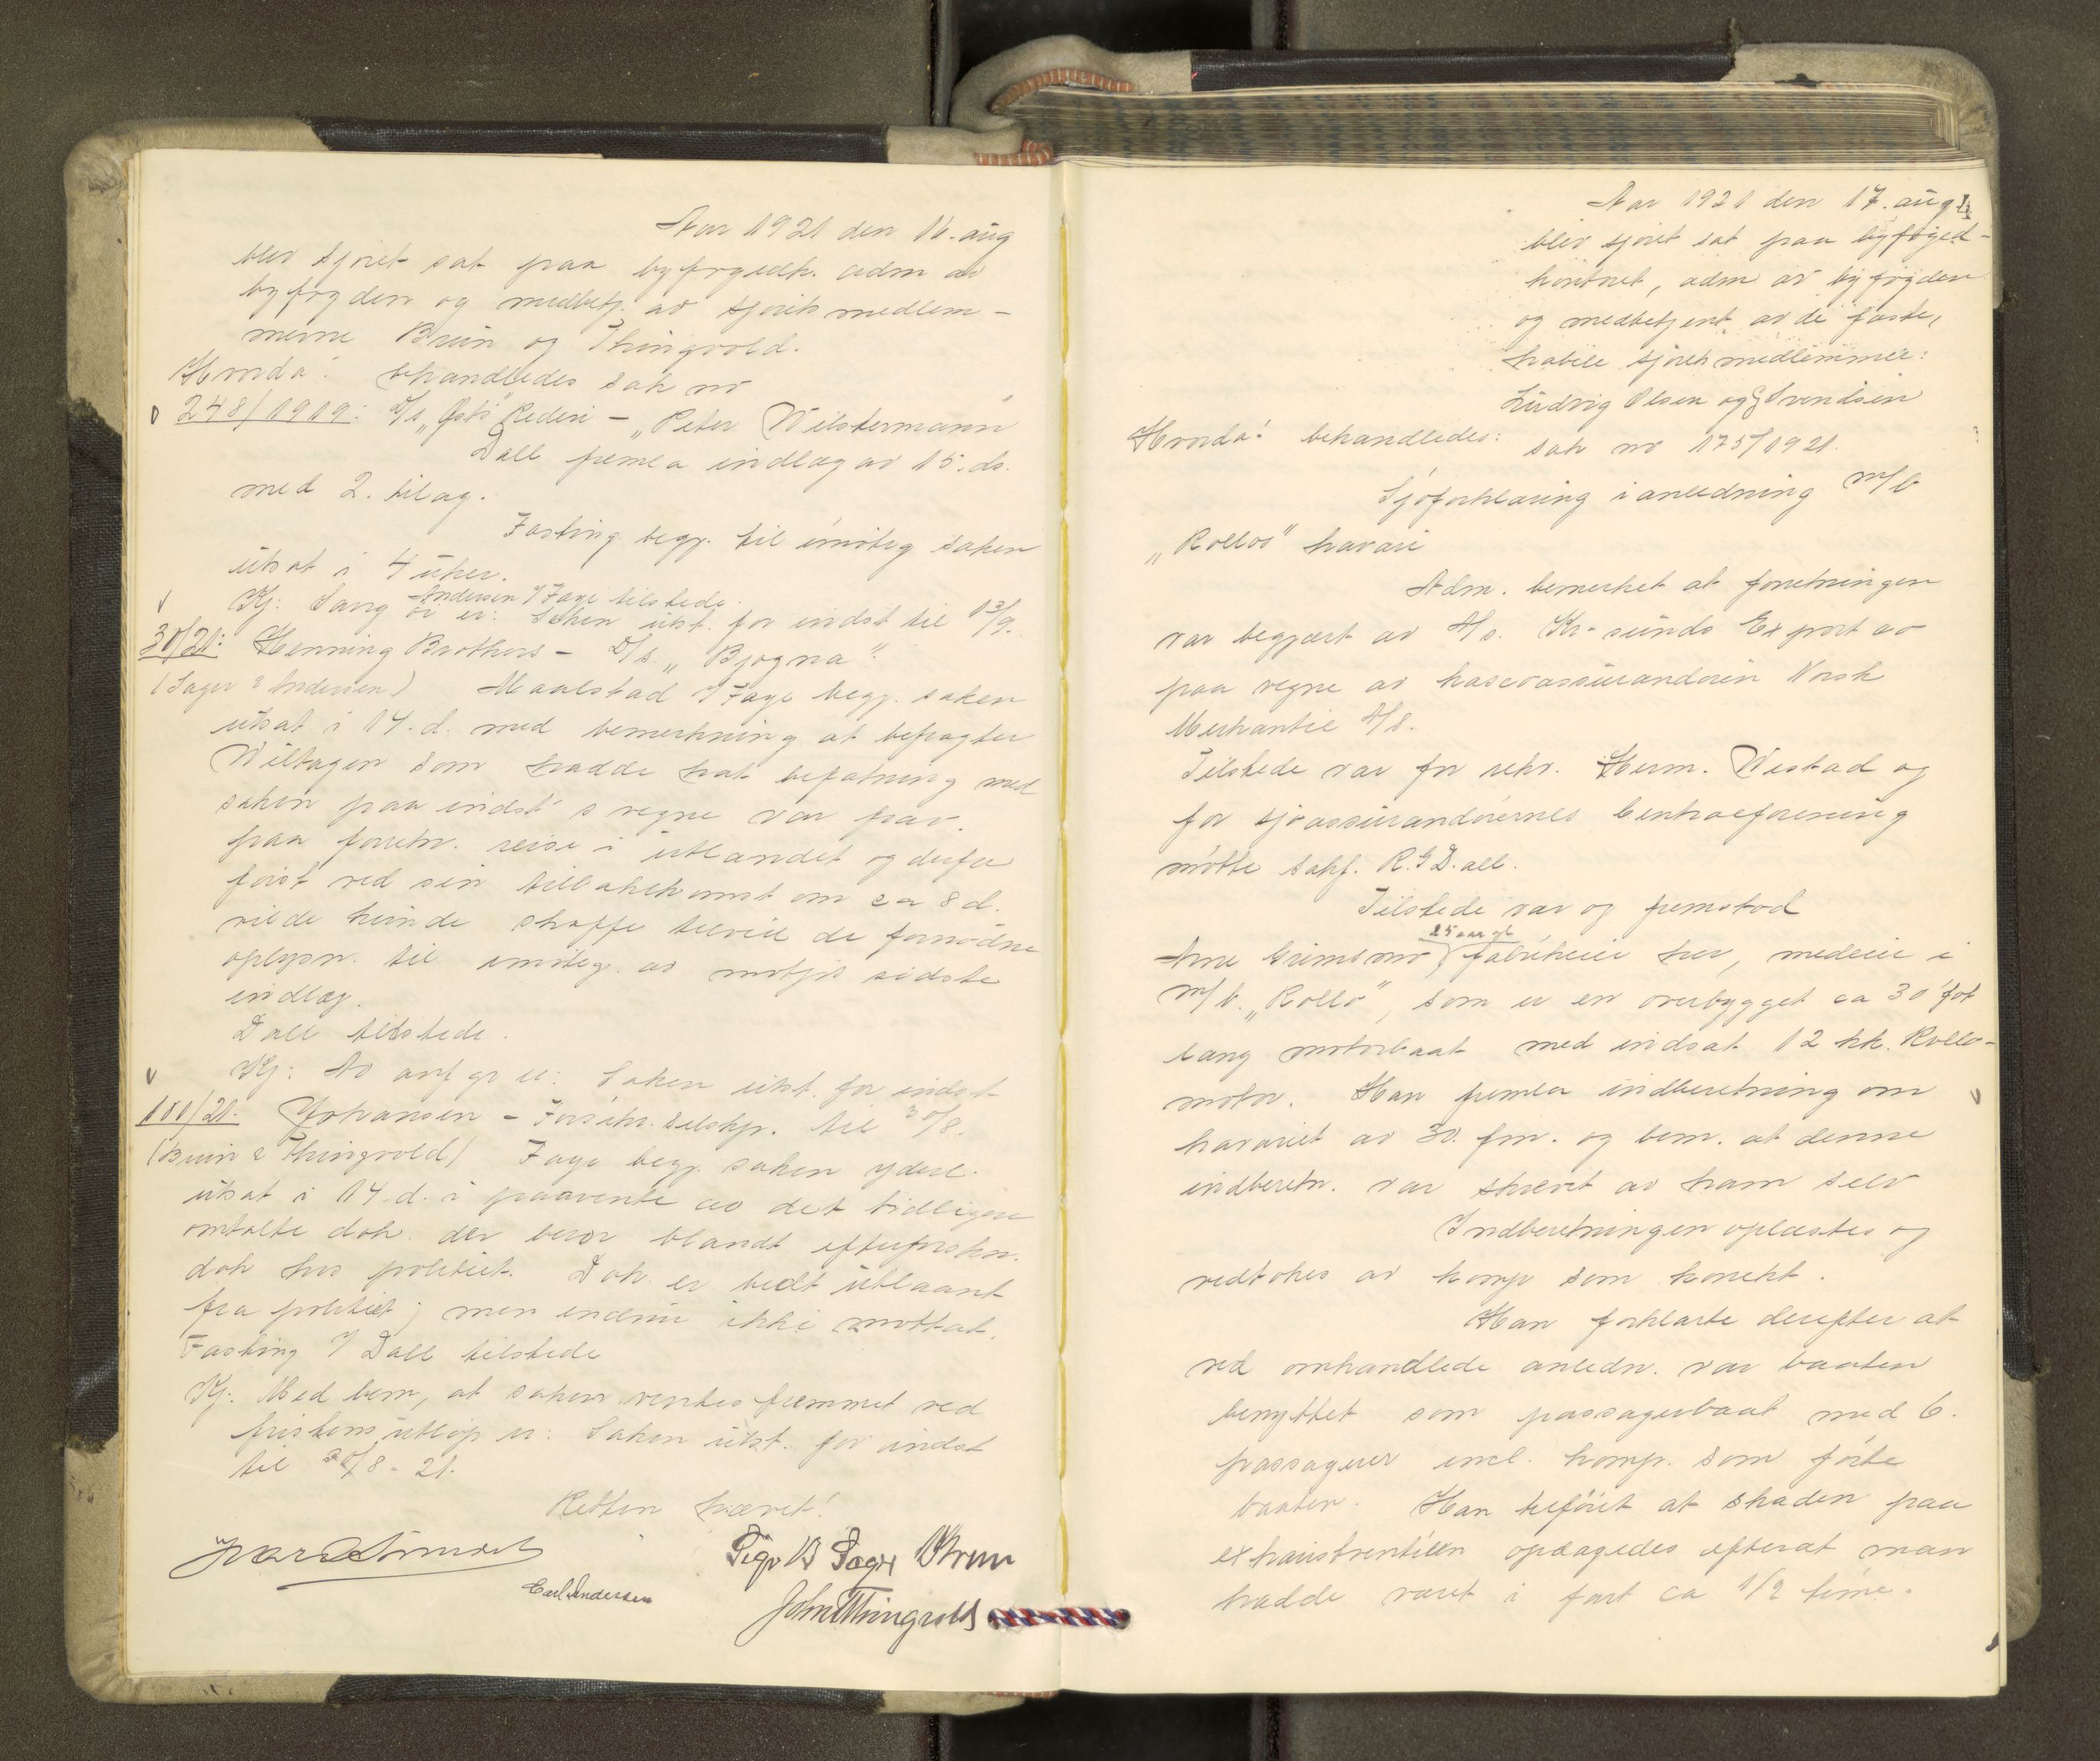 Aar 1921 den 16. aug
blev sjøret sat paa byfogedk. adm av
byfogden og medbetj. av sjøretsmedlem-
merne Bruun og Thingvold.
Hvorda! behandledes sak nr
248/1919: D/s „Østs" Rederi – „Peter Wilstermann"
Dall fremla indlæg av 15. ds.
med 2. bilag.
Fasting begj. til imøteg saken
utsat i 4 uker.
Andersen f Faye tilstede.
Kj: Saken utst. for indst til 13/9.
30/21: Henning Brothers – D/s „Bjogna".
(Sager & Andersen) Maalstad f Faye begj. saken
utsat i 14. d. med bemerkning at befragter
Wiltagen som hadde hat befatning med
saken paa indst's vegne var frav.
paa forretn. reise i utlandet og derfor
først ved sin tilbakekomst om ca 8 d.
vilde kunde skaffe tilveie de fornødne
oplysn. til imøteg. av motpts sidste
indlæg.
Dall tilstede.
Kj: Av anf gr er: Saken utst. for indst
til 30/8.
100/21. Johansen – Forsikr. selskp.
(Bruun & Thingvold) Faye begj. saken yderl.
utsat i 14. d. i paavente av det tidligere
omtalte dok. der beror blandt efterforskn.
dok hos politiet. Dok. er bedt utlaant
fra politiet; men endnu ikke mottat.
Fasting f Dall tilstede
Kj. Med bem, at saken ventes fremmet ved
fristens utløp er: Saken utst. for indst
til 30/8 - 21.
Retten hævet!
Sigv B Sager Bruun
Carl Andersen
John Thingvold
Aar 1921 den 17. aug 4
blev sjøret sat paa byfoged-
kontoret, adm av byfogden
og medbetjent av de faste,
habile sjøretsmedlemmer:
Ludvig Olsen og G Svendsen
Hvorda! behandledes: sak nr 175/1921.
Sjøforklaring i anledning m/b
„Rollos" havari
Adm. bemerket at forretningen
var begjært av A/s. Kr-sunds Export av
paa vegne av kascoassurandøren Norsk
Merkantil A/S.
Tilstede var for rekv. Herm. Vestad og
for sjøassurandørernes Centralforening
møtte sakf. R. G Dall.
Tilstede var og fremstod
25 aar gl
Arne Grimsmo fabrikeier her, medeier i
m/b. „Rollo", som er en overbygget ca 30 fot
lang motorbaat med indsat 12 hk. Rollo-
motor. Han fremla indberetning om
havariet av 30. fm. og bem. at denne
indberetn. var skrevet av ham selv
Indberetningen oplæstes og
vedtokes av komp som korrekt.
Han forklarte derefter at
ved omhandlede anledn. var baaten
benyttet som passagerbaat med 6.
passagerer incl. komp. som førte
baaten. Han tilføiet at skaden paa
exhaustventilen opdagedes efterat man
hadde været i fart ca 1/2 time.